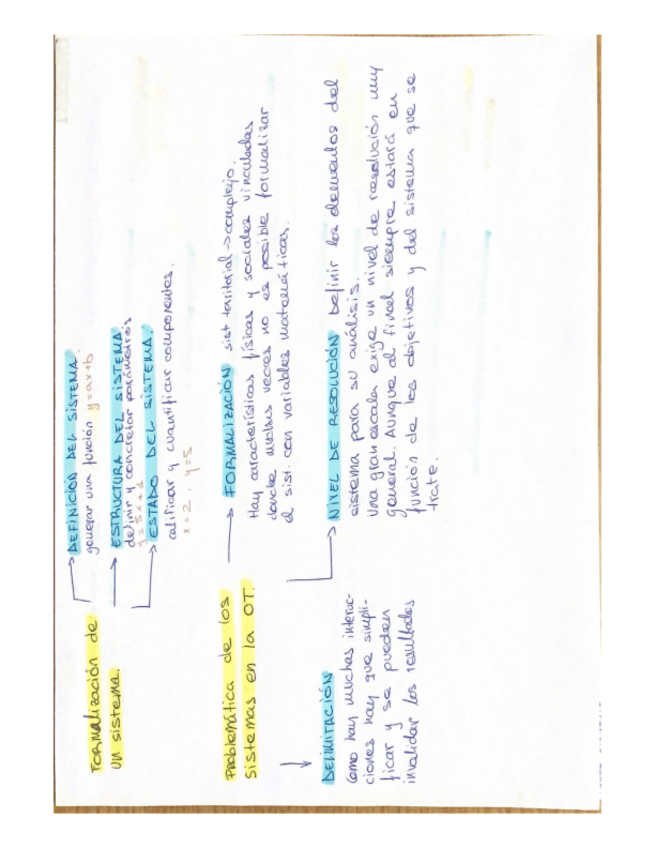 FORMAlización de
un sistema.
DEFINICIÓN DEL SISTEMA
generar una función y=ax+b
ESTRUCTURA DEL SISTEMA
definir y concretar parámetros
ESTADO DEL SISTEMA.
calificar y cuantificar componentes.
x=2. y=5
Problemática de los
sistemas en la OT.
FORMALIZACIÓN sist territorial -> complejo.
Hay características físicas y sociales vinculadas
donde muchas veces no es posible formalizar
el sist. con variables matemáticas.
NIVEL DE RESOLUCIÓN Definir los elementos del
sistema para su análisis.
Una gran escala exige un nivel de resolución muy
general. Aunque al final siempre estará en
función de los objetivos y del sistema que se
trate.
DELIMITACIÓN
Como hay muchas interac-
ciones hay que simpli-
ficar y se pueden
invalidar los resultados